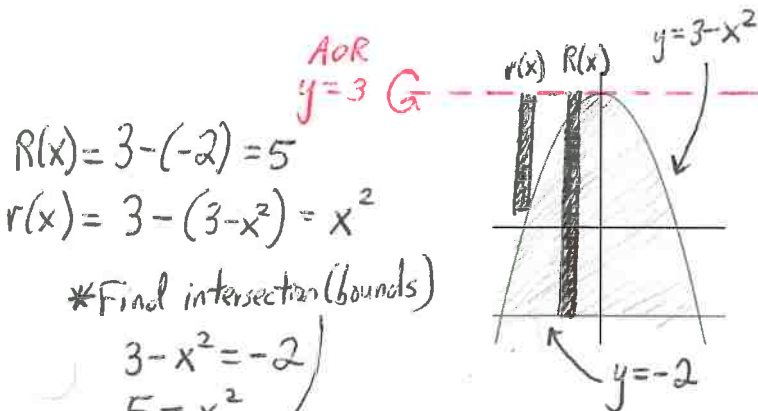 AOR
y=3
r(x) R(x)
y=3-x²
R(x)= 3-(-2) =5
r(x) = 3-(3-x²) = x²
*Find intersection (bounds)
3-x²=-2
5=x²
y=-2